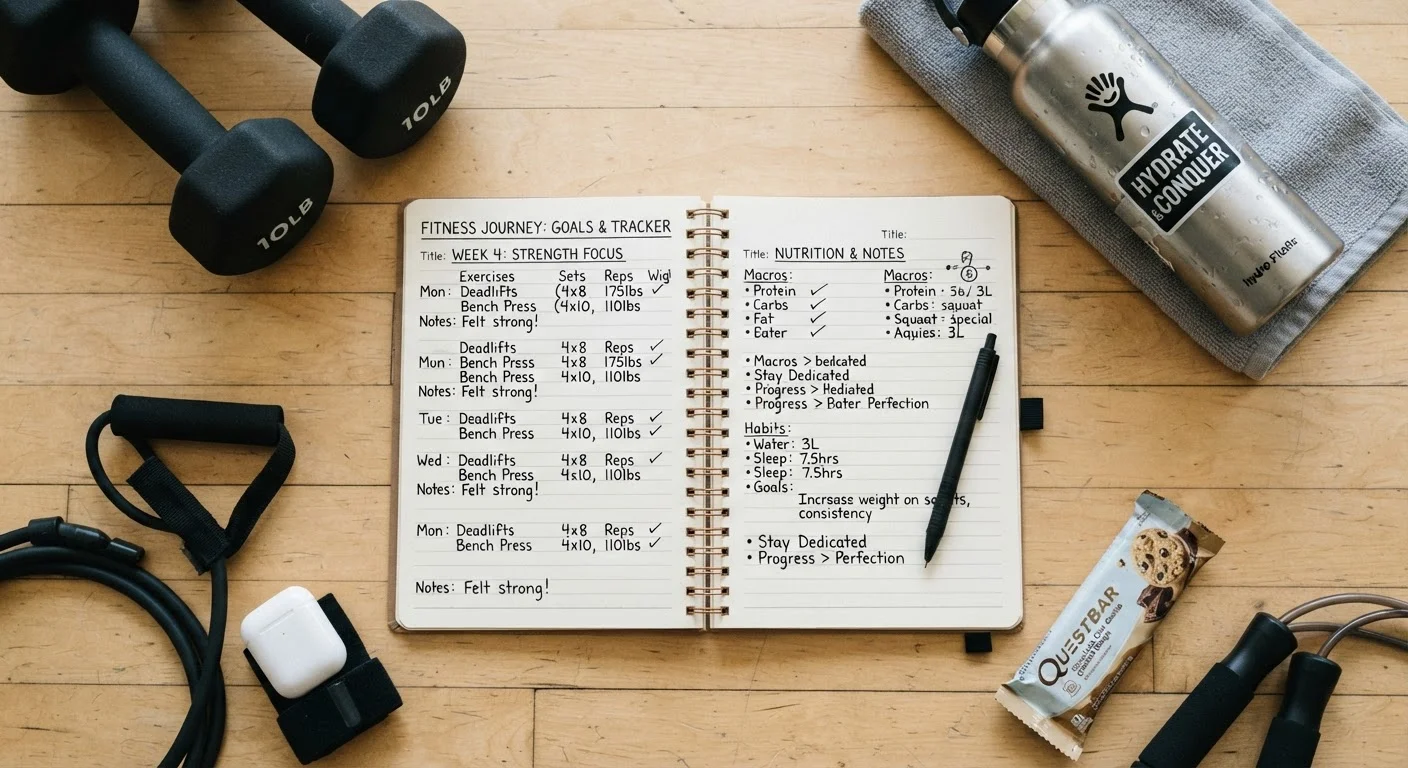 10LB
10LB
HYDRATE
& CONQUER
Hydro Flask
FITNESS JOURNEY: GOALS & TRACKER
Title: WEEK 4: STRENGTH FOCUS
Exercises Sets Reps Wigl
Mon: Deadlifts (4x8 175lbs ✓
Bench Press (4x10, 110lbs
Notes: Felt strong!
Deadlifts 4x8 Reps ✓
Mun: Bench Press 4x8 175lbs ✓
Bench Press 4x10, 110lbs
Notes: Felt strong!
Tue: Deadlifts 4x8 Reps ✓
Bench Press 4x10, 110lbs ✓
Wed: Deadlifts 4x8 Reps ✓
Bench Press 4x10, 110lbs
Notes: Felt strong!
Mon: Deadlifts 4x8 Reps ✓
Bench Press 4x10, 110lbs ✓
Notes: Felt strong!
Title:
Title: NUTRITION & NOTES
Macros:
• Protein ✓
• Carbs ✓
• Fat ✓
• Eater ✓
Macros:
• Protein · / 3L
• Carbs: squat
• Squat - special
• Aquies: 3L
• Macros > bedcated
• Stay Dedicated
• Progress > Hediated
• Progress > Bater Perfection
Habits:
• Water: 3L
• Sleep: 7.5hrs
• Sleep: 7.5hrs
• Goals:
Increase weight on
consistency
• Stay Dedicated
• Progress > Perfection
QUESTBAR